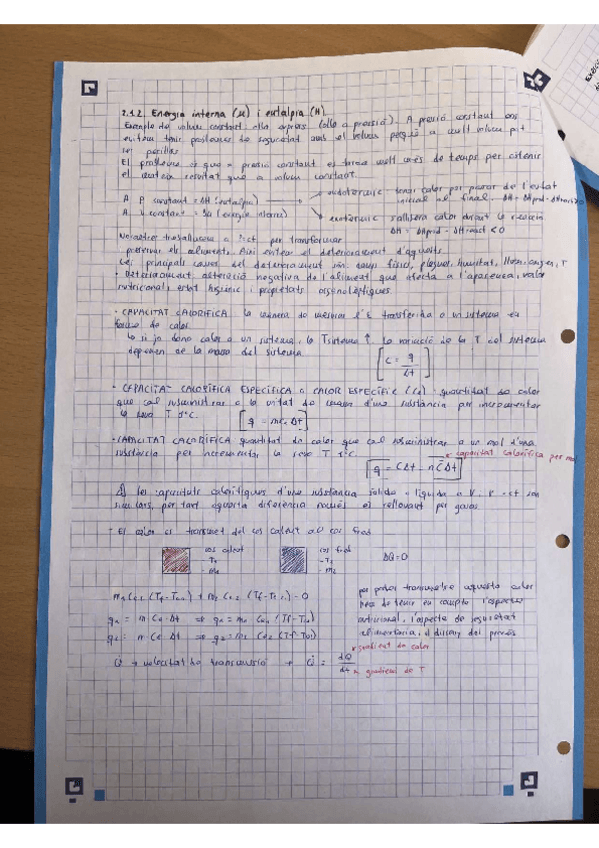 2.1.2. Energia interna (u) i entalpia (H)
Exemple de volum constant: olla express (olla a pressió). A pressió constant ens
evitem tenir problemes de seguretat amb el volum perquè a molt volum pot
ser perillós
El problema és que a pressió constant es tarda molt més de temps per obtenir
el mateix resultat que a volum constant.
A P constant = ΔH (entalpia)
endotèrmic: tenir calor per passar de l'estat
inicial al final. ΔH = ΔHprod - ΔHreact > 0
A V constant = Δu (energia interna)
exotèrmic: calor durant la reacció
ΔH = ΔHprod - ΔHreact < 0
Nosaltres treballarem a P=ct per transformar
preservar els aliments. Així evitem el deteriorament d'aquests
Les principals causes del deteriorament són: temps, plagues, humitat, llum, T
· Deteriorament: alteració negativa de l'aliment que afecta a l'aparença, valor
nutricional, estat higiènic i propietats organolèptiques.
· CAPACITAT CALORÍFICA: la manera de mesurar l'E transferida a un sistema en
forma de calor
Si jo dono calor a un sistema, la Tsistema ↑. La variació de la T del sistema
dependrà de la massa del sistema
[C = q/Δt]
· CAPACITAT CALORÍFICA ESPECÍFICA o CALOR ESPECÍFIC (Ce): quantitat de calor
que cal subministrar a la unitat de massa d'una substància per incrementar
la seva T 1°C.
[q = mCeΔt]
· CAPACITAT CALORÍFICA quantitat de calor que cal subministrar a un mol d'una
substància per incrementar la seva T 1°C.
capacitat calorífica per mol
[q = CΔt = nCΔt]
les capacitats calorífiques d'una substància sòlida o líquida a V, P=ct són
similars, per tant aquesta diferència només és rellevant per gasos.
· El calor es transmet del cos calent al cos fred
cos calent
- T1
- m1
cos fred
- T2
- m2
ΔQ = 0
m1 Ce1 (Tf-To1) + m2 Ce2 (Tf-To2) = 0
q1 = m Ce Δt ⇒ q1 = m1 Ce1 (Tf-To1)
q2 = m Ce Δt ⇒ q2 = m2 Ce2 (Tf-To2)
per poder transmetre aquesta calor
hem de tenir en compte l'aspecte
nutricional, l'aspecte de seguretat
alimentària, el disseny del procés
Q̇ → velocitat de transmissió → Q̇ = dQ/dt
gradient de calor
gradient de T